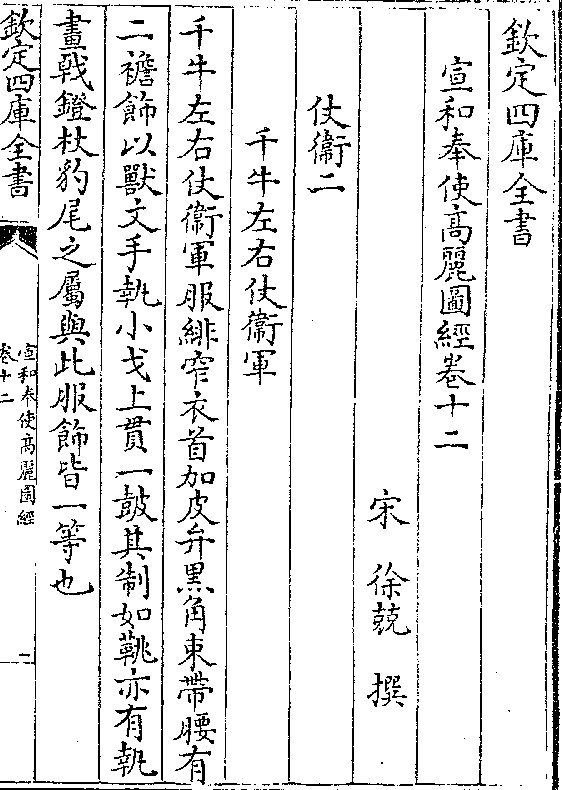 欽定四庫全書
宣和奉使高麗圖經卷十二
宋 徐兢 撰
仗衞二
千牛左右仗衞軍
千牛左右仗衞軍服緋窄衣首加皮弁黑角束帶腰有
二襜飾以獸文手執小戈上貫一鼓其制如鞉亦有執
畫戟鐙杖豹尾之屬與此服飾皆一等也
欽定四庫全書
宣和奉使高麗圖經
卷十二
一